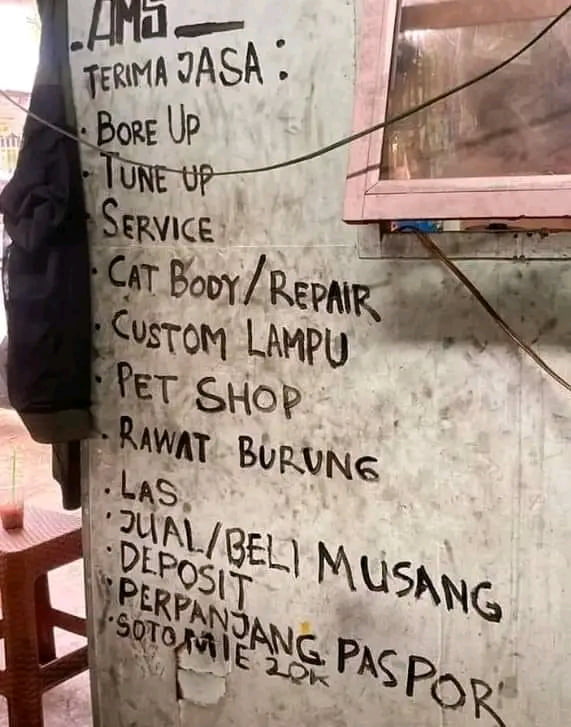 .AMS
TERIMA JASA :
• BORE UP
• TUNE UP
• SERVICE
• CAT BODY/REPAIR
• CUSTOM LAMPU
• PET SHOP
• RAWAT BURUNG
• LAS
• JUAL/BELI MUSANG
• DEPOSIT
• PERPANJANG PASPOR
• SOTO MIE 20K